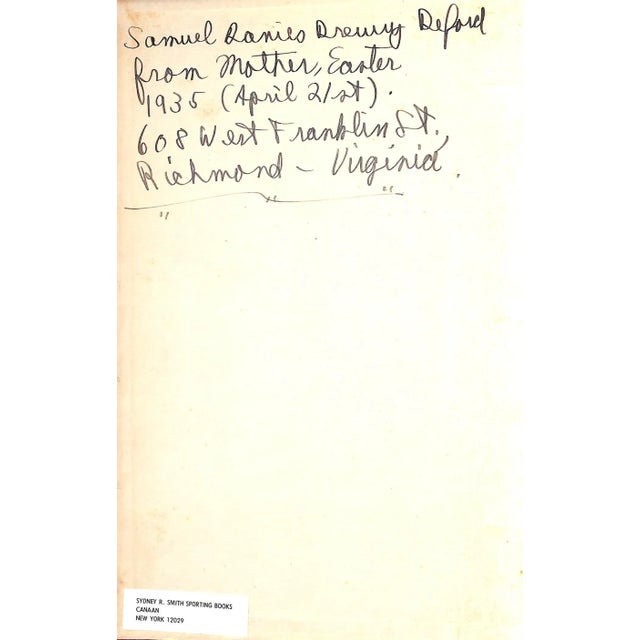 Samuel Davies Drewry Deford
from Mother, Easter
1935 (April 21st).
608 West Franklin St.,
Richmond – Virginia.
" " "
SYDNEY R. SMITH SPORTING BOOKS
CANAAN
NEW YORK 12029